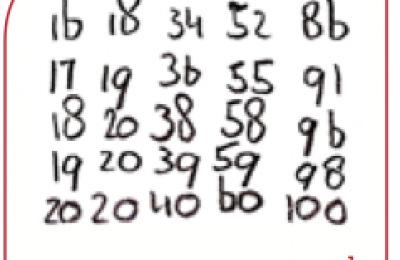 16 18 34 52 86
17 19 36 55 91
18 20 38 58 96
19 20 39 59 98
20 20 40 60 100